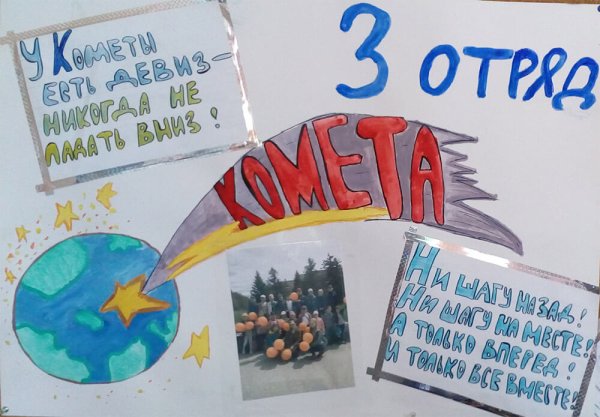 У КОМЕТЫ
ЕСТЬ ДЕВИЗ —
НИКОГДА НЕ
ПАДАТЬ ВНИЗ!
3 ОТРЯД
КОМЕТА
НИ ШАГУ НАЗАД!
НИ ШАГУ НА МЕСТЕ!
А ТОЛЬКО ВПЕРЕД!
И ТОЛЬКО ВСЕ ВМЕСТЕ!!